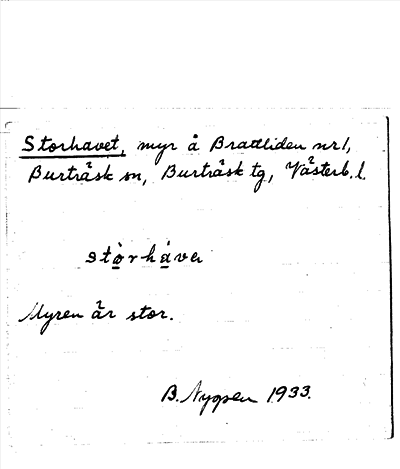 Storhavet, myr å Brattliden nr 1,
Burträsk sn, Burträsk tg, Västerb. l.
stòrháver
Myren är stor.
B. Nygren 1933.